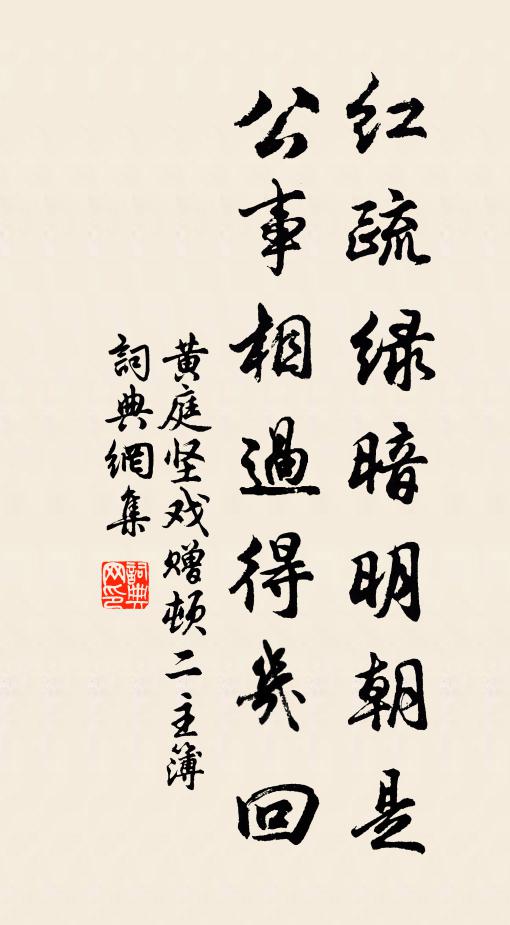 红疏绿暗明朝是
公事相過得幾回
黄庭坚戏赠顿二主簿
詞典網集
詞典网印